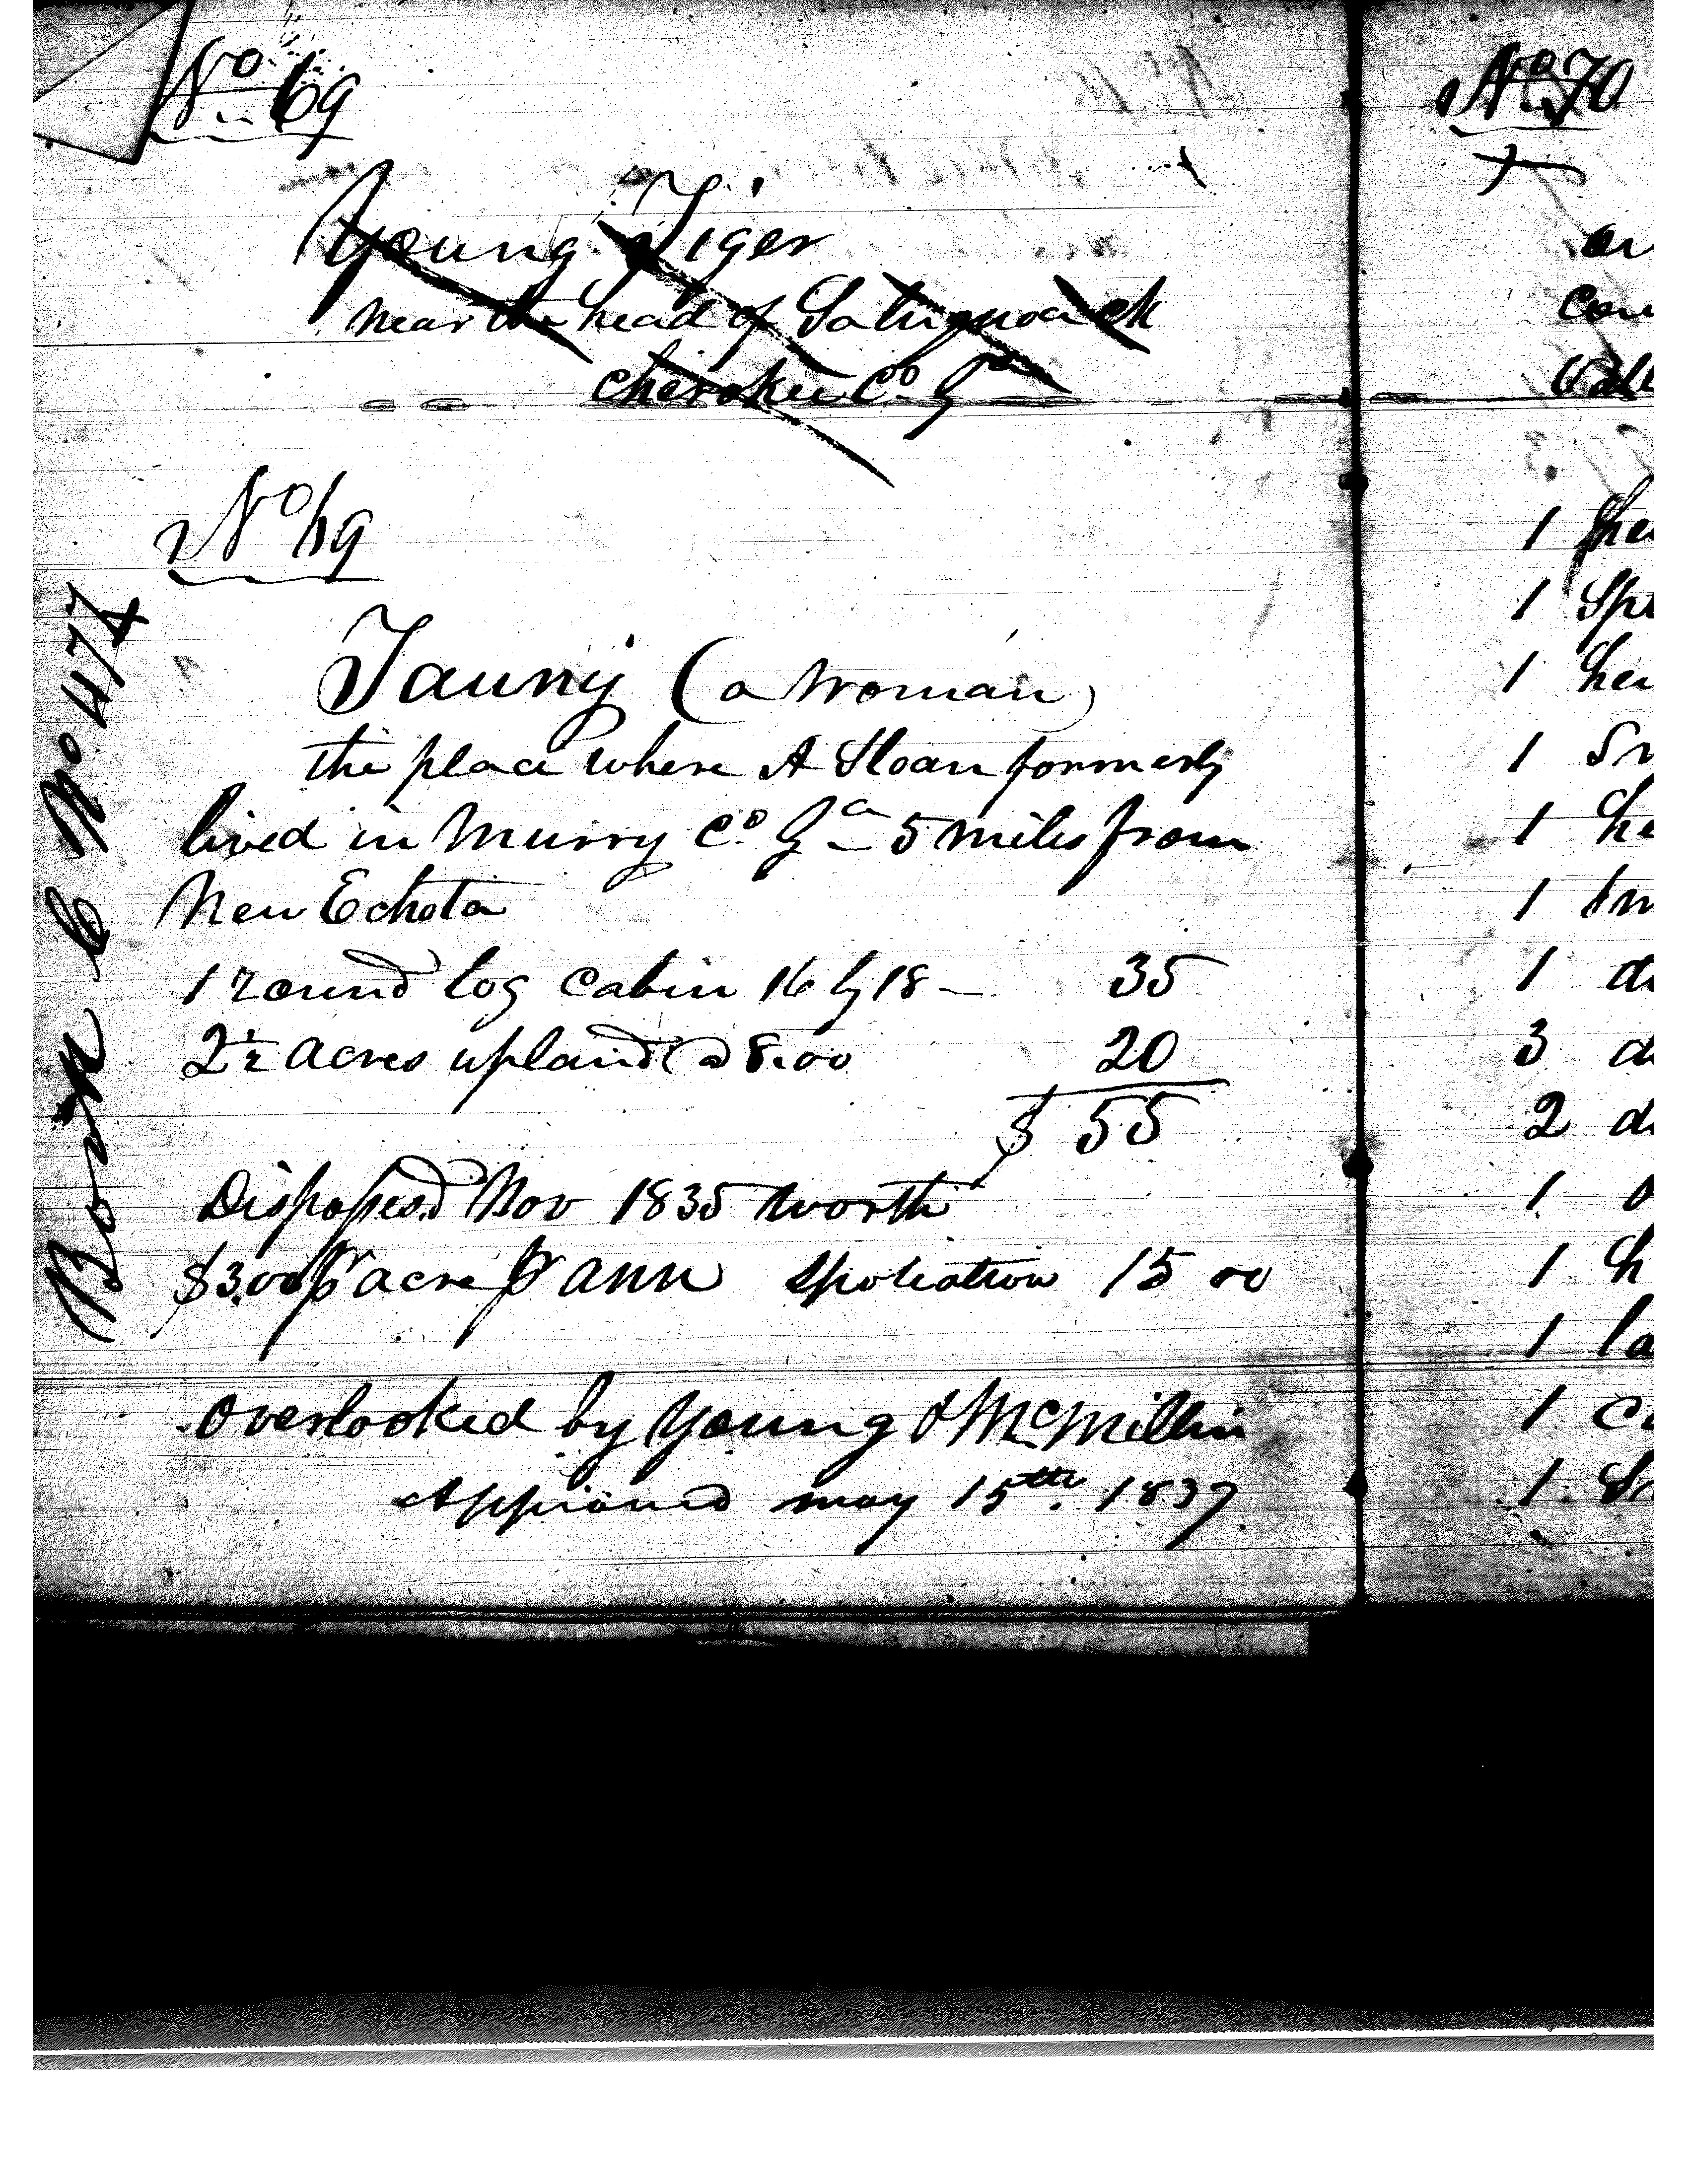 No 69
Young Tiger
near the head of
Cherokee Co. Ga
No 69
(a woman)
the place where A Sloan formerly
lived in Murry Co. Ga 5 miles from
New Echota
1 round log cabin 16 by 18 — 35
2½ acres upland @ 8.00 20
$ 55
Dispossesd Nov 1835 worth
$3.00 pr acre pr ann spoliation 15 00
Overlooked by Young & McMillin
Approved may 15th. 1837
Book C No 474
No 70
1
1
1
1
1
1
1
3
2
1
1
1
1
1